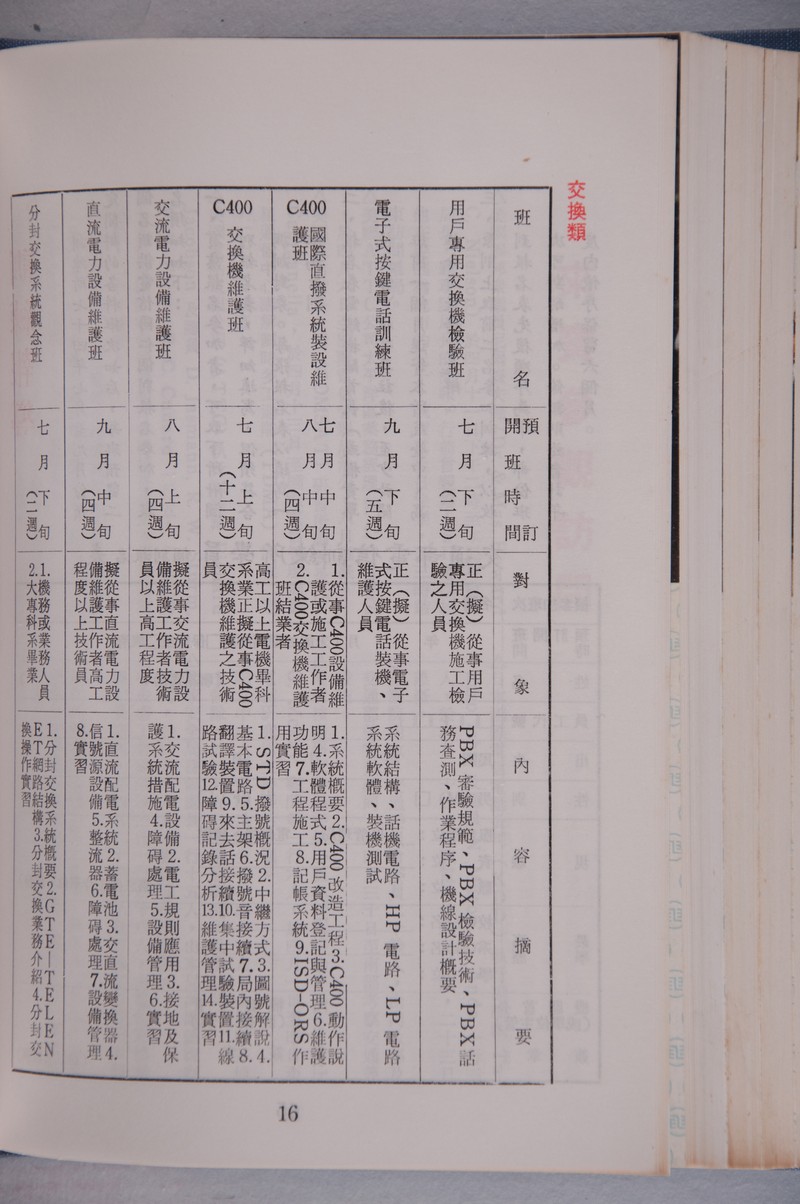 交換類
班名
預訂
開班時間
對象
內容摘要
用戶專用交換機檢驗班
七月下旬
(二週)
正(擬)從事用戶
專用交換機施工檢
驗之人員
PBX審驗規範、PBX檢驗技術、PBX話
務查測、作業程序、機線設計概要
電子式按鍵電話訓練班
九月下旬
(五週)
正(擬)從事電子
式按鍵電話裝機、
維護人員
系統結構、話機電路、HP電路、LP電路
系統軟體、裝機測試
C400國際直撥系統裝設維
護班
七月中旬
八月中旬
(四週)
1.從事C400設備維
護或施工工作者
2.C400交換機維護
班結業者
1.系統概要2.C400改造工程3.C400動作說
明4.軟體程式5.用戶資料登記與管理6.維護
功能7.工程施工8.記帳系統9.ISD-ORS作
用實習
C400交換機維護班
七月上旬
(十二週)
高工以上電機畢科
系業正擬從事C400
交換機維護之技術
員
1.STD撥號概況2.中繼方式3.圖號解說4.
基本電路5.主架6.撥號音接續7.局內接續8.
翻譯裝置9.來去話接續10.集中試驗裝置11.線
路試驗12.障碍記錄分析13.維護管理14.實習
交流電力設備維護班
八月上旬
(四週)
擬從事交流電力設
備維護工作者技術
員以上高工程度
1.交流配電設備2.電工規則應用3.接地及保
護系統措施4.障碍處理5.設備管理6.實習
直流電力設備維護班
九月中旬
(四週)
擬從事直流電力設
備維護工作者高工
程度以上技術員
1.直流配電系統2.蓄電池3.交直流變換器4.
信號源設備5.整流器6.障碍處理7.設備管理
8.實習
分封交換系統觀念班
七月下旬
(二週)
1.機務或業務人員
2.大專科系畢業
1.分封交換系統概要2.GTE-TELEN
ET網路結構3.分封交換業務介紹4.分封交
換操作實習
16